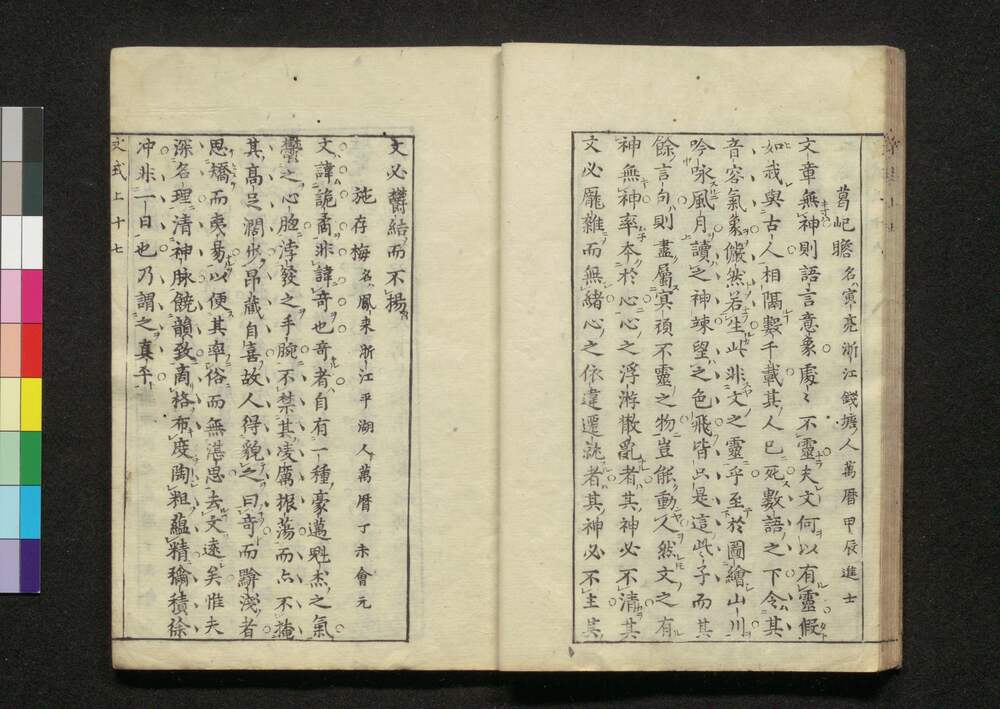 葛屺瞻名寅亮浙江錢塘人萬曆甲辰進士
文章無神則語言意象處々不靈夫文何以有靈假
如我與古人相隔數千載其人已死數語之下令其
音容氣象儼然若生此非文之靈乎至於圖繪山川
吟咏風月讀之神竦望之色飛皆只是這些子而其
餘言句則盡屬冥頑不靈之物豈能動人然文之有
神無神率本於心心之浮游散亂者其神必不清其
文必龐雜而無緒心之依違遷就者其神必不主其
文必鬱結而不揚
施存梅名鳳来浙江平湖人萬曆丁未會元
文諱詭譎非諱奇也奇者自有一種豪邁魁杰之氣
欝之心脸浡發之手腕不禁其凌厲振蕩而亦不掩
其高足濶步昻藏自喜故人得貌之曰奇而辭淺者
思矯而夷易以便其率俗而無湛思去文遠矣惟夫
深名理清神脉饒韻致商格布度陶粗蘊精積徐
冲非一日也乃謂之真平
文式上十七